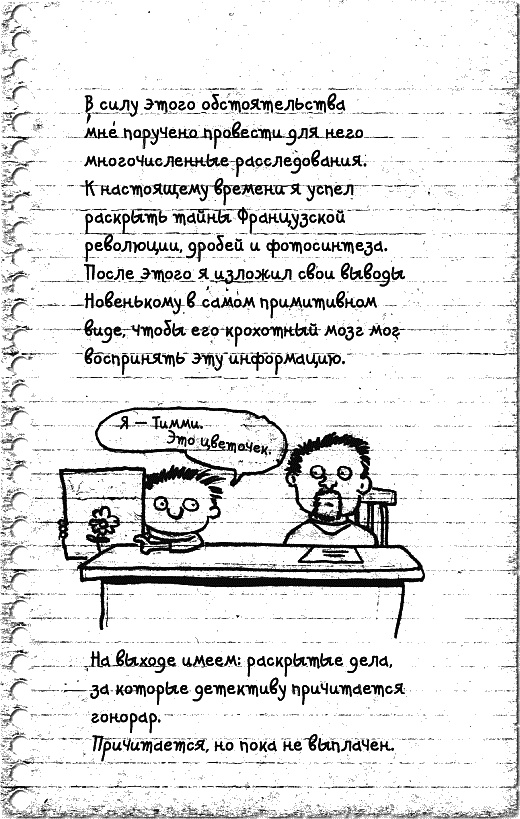 В силу этого обстоятельства
мне́ поручено провести для него
многочисленные расследования.
К настоящему времени я успел
раскрыть тайны Французской
революции, дробей и фотосинтеза.
После этого я изложил свои выводы
Новенькому в са́мом примитивном
виде, чтобы его крохотный мозг мог
воспринять эту информацию.
Я — Тимми.
Это цветочек.
На выходе имеем: раскрытые дела,
за которые детективу причитается
гонорар.
Причитается, но пока не выплачен.